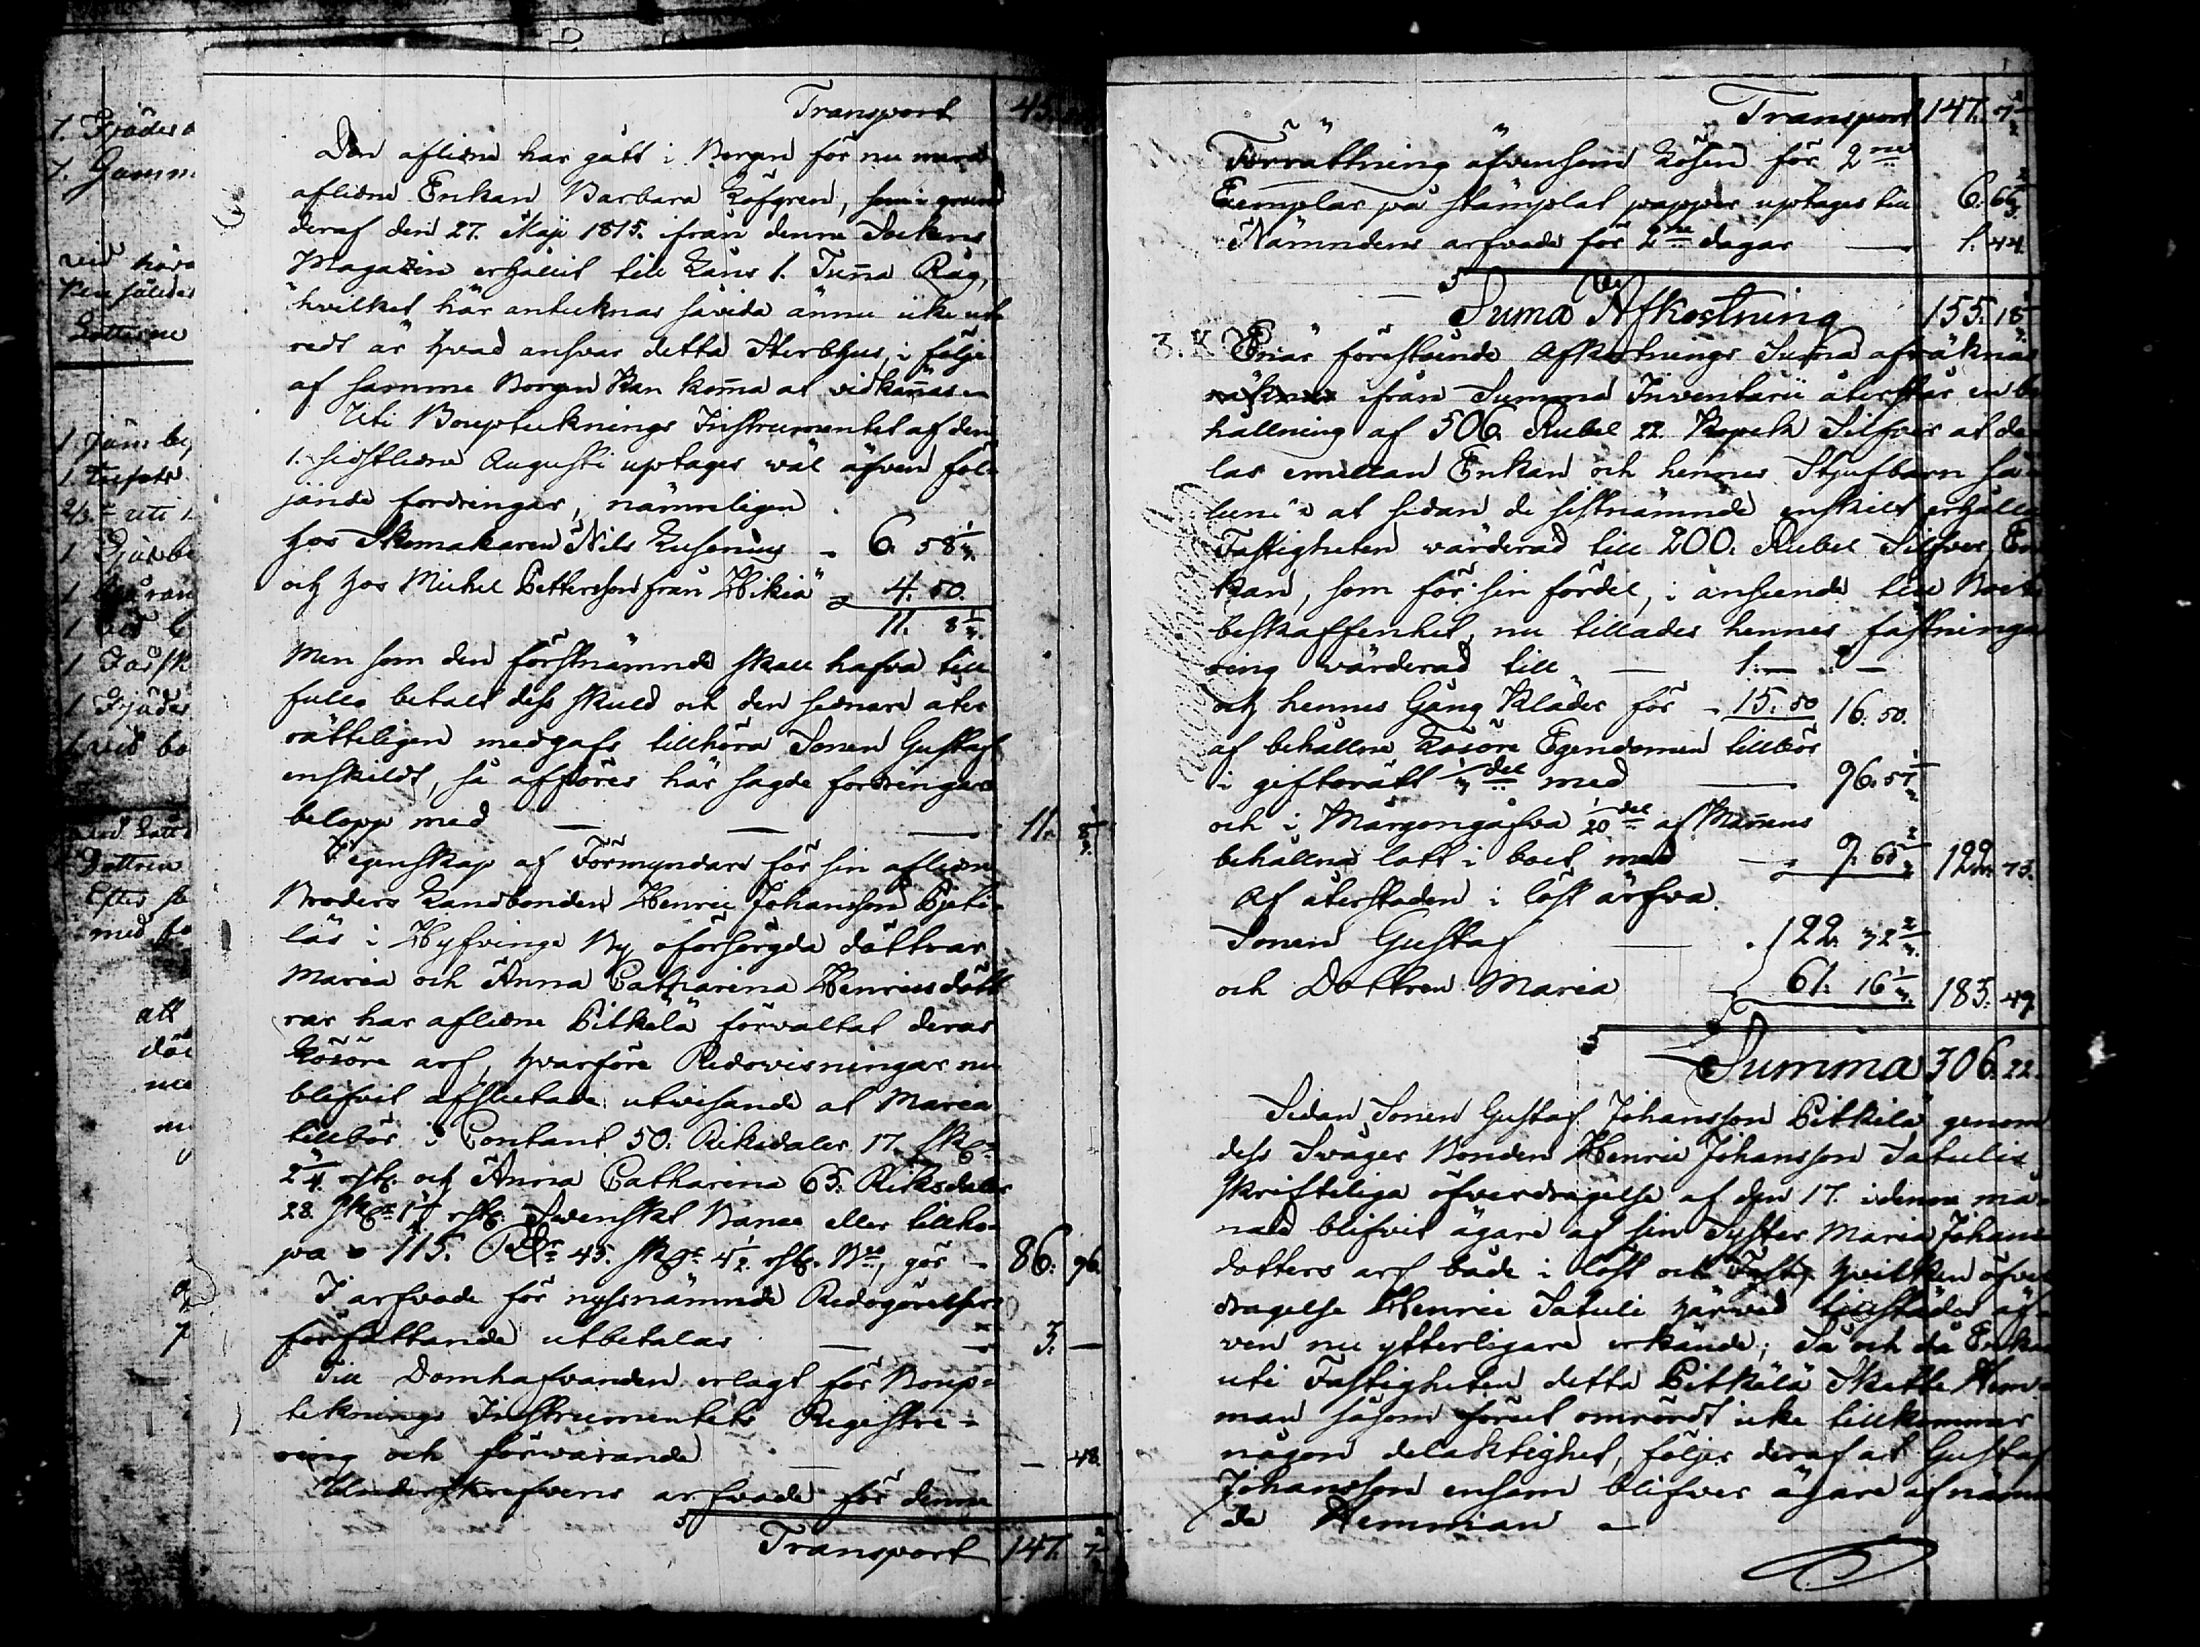 Transport 45.
Den aflidne har gått i Borgen för nu mera
aflidne Enkan Barbara Löfgren, som i grund
deraf den 27. Maji 1815. ifrån denne Sockens
Magazin erhållit till Låns 1. Tunna Råg,
hvilket här antecknas såvida ännu icke ut
redt är hvad ansvar detta Sterbhus, i följe
af samma Borgen kan komma at vidkännas
Uti Bouptecknings Instrumentet af den
1. sidstledne Augusti uptages wäl äfven föl
jande fordringar, nämneligen
hos Skomakaren Nils Lusenius 6. 58 1/3.
och hos Michel Pettersson från Hikiä 4. 50.
11. 8 1/3.
Men som den förstnämnde skall hafva till
fullo betalt dess skuld och den sednare åter
rätteligen medgafs tillhöra Sonen Gustaf
enskildt, så afföres här sagde fordringars
belopp med — — — 11. 8 1/3
I egenskap af Förmyndare för sin aflidne
Broders Landbonden Henric Johansson
i Hyfvinge By oförsörgda döttrar
Maria och Anna Catharina Henricsdött
rar har aflidne Pitkälä förvaltat deras
Lösöre arf, hvarföre Redovisningar nu
blifvit afslutade utvisande at Maria
tillhör i Contant 50. Riksdaler 17. sk
2 1/4 rst. och Anna Catharina 65. Riksdaler
28. sk rst. Swenskt Banco eller tillho
pa 115. Rdr 45. sk 4 1/2 rst. Bco, gör 86. 96.
I arfvode för nyssnämnde Redogörelsers
författande utbetalas — 3. —
Till Domhafvanden erlagt för Boup-
tecknings Instrumentets Registre-
ring och förwarande — — 48.
Underskrefvens arfvode för denna
Transport 147. 7 2/3
Transport 147. 7 2/3
Förrättning äfvensom Lösen för 2ne
Exemplar på stämplat papper uptages till 6. 66 2/3
Nämndens arfvode för 2ne dagar — 1. 44.
Suma Afkortning 155. 18 1/3
3. K
När förestående Afkortnings Suma afräknas
ifrån Summa Inventarii återstår en be
hållning af 506. Rubel 22 Kopek Silfver at de
las emellan Enkan och hennes Stjufbarn så
at sedan de sistnämnde enskilt erhålla
Fastigheten värderad till 200. Rubel Silfver, En
kan, som för sin fördel, i anseende till Boets
beskaffenhet, nu tillades hennes fästninga
ring värderad till — 1. — —
och hennes Gång Kläder för 15. 50 16. 50.
af behållne Lösöre Egendomen tillhör
i giftorätt 1/3 del med — 96. 57 1/3
och i Morgongåfva 1/20 del af Mannens
behållna lott i boet med 9. 65 2/3 122. 73.
Af återstoden i löst ärfva
Sonen Gustaf — 122. 32 2/3.
och Dottren Maria — 61. 16 1/3. 183. 49
Summa 306. 22.
Sedan Sonen Gustaf Johansson Pitkälä genom
dess Svåger Bonden Henric Johansson Satulis
skrifteliga öfverdragelse af den 17. i denna må-
nad blifvit ägare af sin Syster Maria Johans
dotters arf både i löst och fast, hvilken öfver
dragelse Henric Satuli härvid tillstädes äf-
ven nu ytterligare erkände; Så och då Enkan
uti Fastigheten detta Pitkälä Skatte Hem-
man såsom förut omrördt icke tillkommer
någon delaktighet, följer deraf at Gustaf
Johansson ensam blifver ägare af nämn
de Hemman —